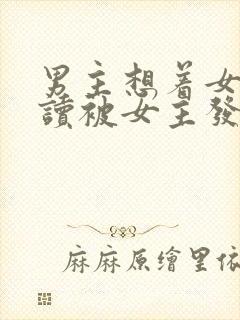 男主想着女
讀被女主發
麻麻原繪里依